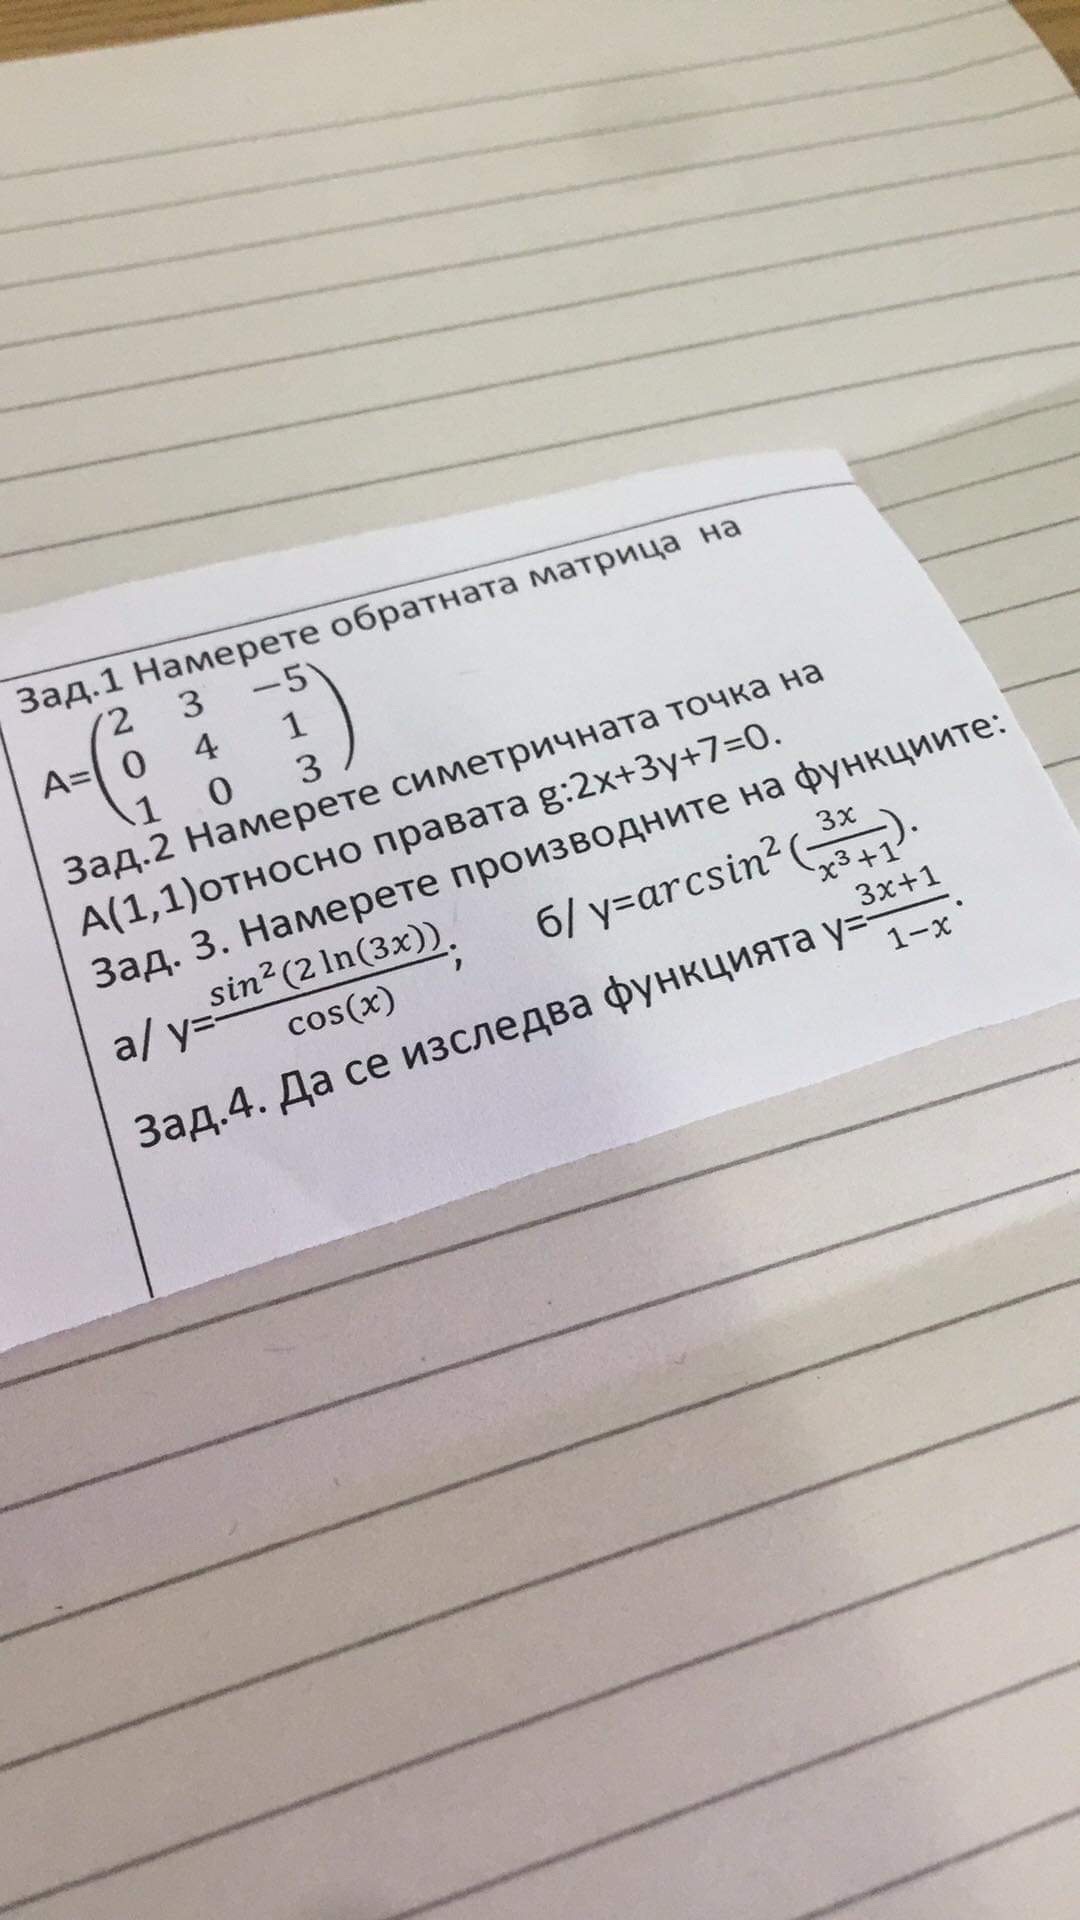 Зад.1 Намерете обратната матрица на
A=(2 3 −5
0 4 1
1 0 3)
Зад.2 Намерете симетричната точка на
A(1,1)относно правата g:2x+3y+7=0.
Зад. 3. Намерете производните на функциите:
а/ y=\frac{sin²(2 ln(3x))}{cos(x)}; б/ y=arcsin²(\frac{3x}{x³+1}).
Зад.4. Да се изследва функцията y=\frac{3x+1}{1−x}.